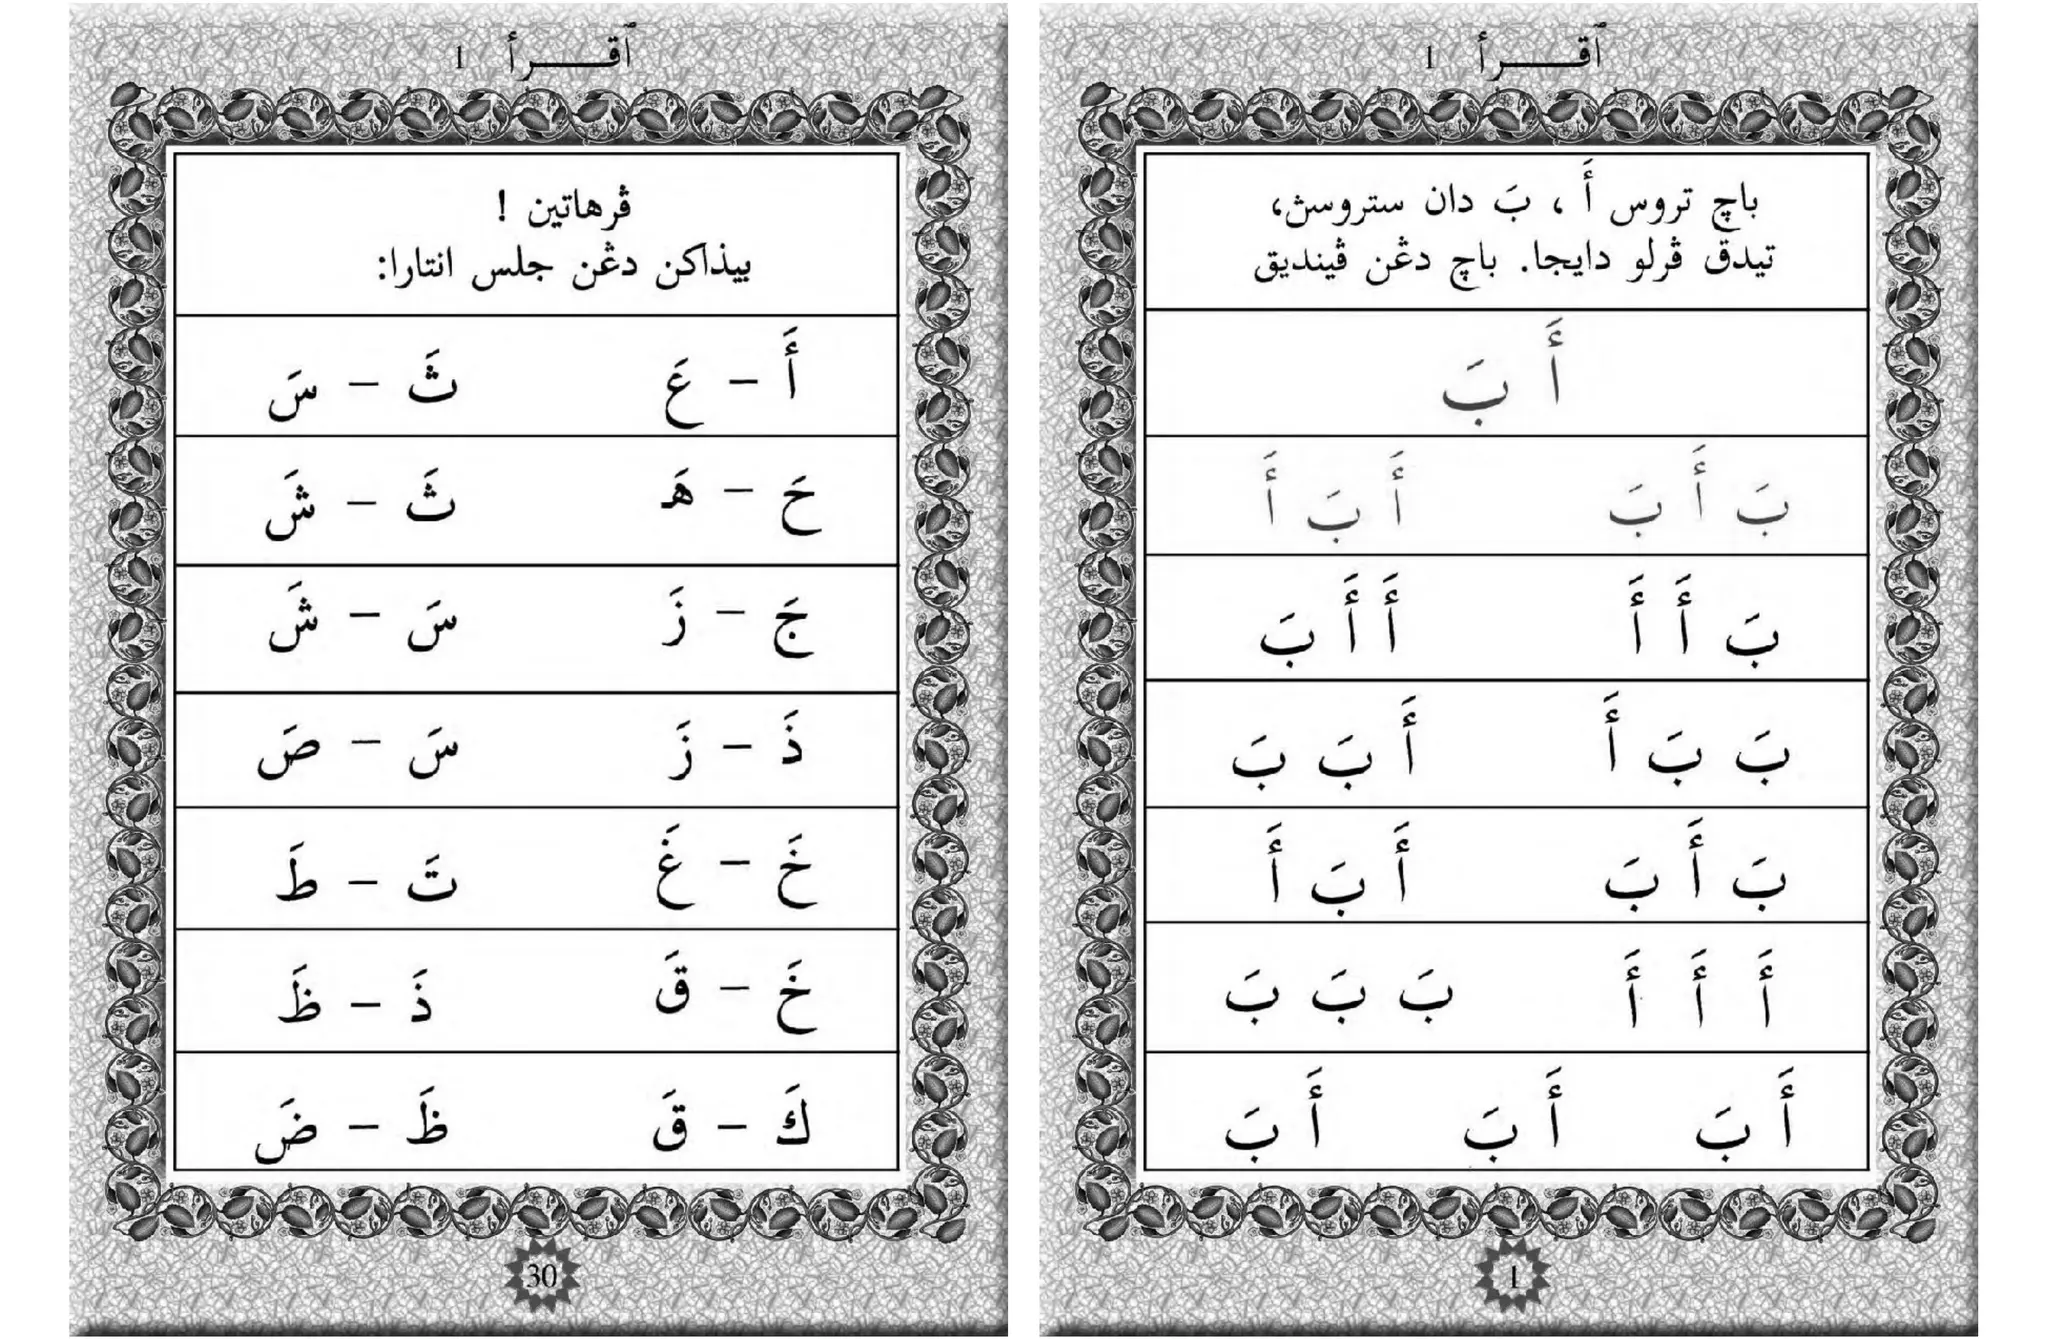 ٱقـــرأ 1
باچ تروس أَ ، بَ دان ستروسڽ،
تيدق ڤرلو دايجا. باچ دڠن ڤينديق
أَ بَ
بَ أَ بَ أَ بَ أَ
بَ أَ أَ أَ أَ بَ
بَ بَ أَ أَ بَ بَ
بَ أَ بَ أَ بَ أَ
أَ أَ أَ بَ بَ بَ
أَ بَ أَ بَ أَ بَ
1
ٱقـــرأ 1
ڤرهاتين !
بيذاكن دڠن جلس انتارا:
أَ – عَ ثَ – سَ
حَ – هَـ ثَ – شَ
جَ – زَ سَ – شَ
ذَ – زَ سَ – صَ
خَ – غَ تَ – طَ
خَ – قَ ذَ – ظَ
كَ – قَ ظَ – ضَ
30